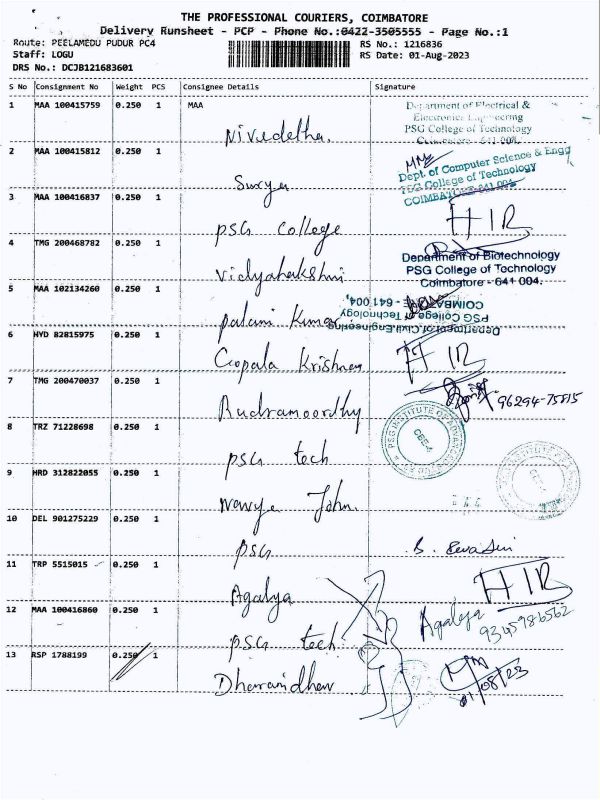 THE PROFESSIONAL COURIERS, COIMBATORE
Delivery Runsheet - PCP - Phone No.:0422-3505555 - Page No.:1
Route: PEELAMEDU PUDUR PC4
RS No.: 1216836
Staff: LOGU
RS Date: 01-Aug-2023
DRS No.: DCJB121683601
S No Consignment No Weight PCS Consignee Details Signature
1 MAA 100415759 0.250 1 MAA
Department of Electrical &
Electronics Engineering
PSG College of Technology
Coimbatore - 641 004.
Nivedetha.
2 MAA 100415812 0.250 1
Dept. of Computer Science & Engg
PSG College of Technology
COIMBATORE-641 004.
Surya
3 MAA 100416837 0.250 1
HIR
PSG College
4 TMG 200468782 0.250 1
Department of Biotechnology
PSG College of Technology
Coimbatore - 641 004.
Vidyahakshmi
5 MAA 102134260 0.250 1
Department of Civil Engineering
PSG College of Technology
COIMBATORE - 641 004,
Palani Kumar
6 HYD 82815975 0.250 1
HIR
Gopala Krishnan
7 TMG 200470037 0.250 1
96294-75815
Rudramoorthy
8 TRZ 71228698 0.250 1
PSG INSTITUTE OF ADVANCED
CBE-4
PSG tech
9 HRD 312822055 0.250 1
John.
10 DEL 901275229 0.250 1
PSG
B.
11 TRP 5515015 0.250 1
HIR
Agalya
12 MAA 100416860 0.250 1
Agalya
9345986562
PSG tech
13 RSP 1788199 0.250 1
01/08/23
Dharanidhar